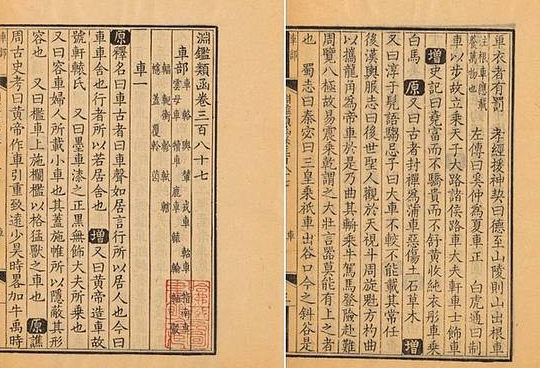 淵鑑類函卷三百八十七
車部
車一
原釋名曰車古者曰車聲如居言行所以居人也今曰
車車舍也行者所以若居舍也 增又曰黃帝造車故
號軒轅氏 又曰墨車漆之正黑無飾大夫所乘也
又曰容車婦人所載小車也其蓋施帷所以隱蔽其形
容也 又曰檻車上施欄檻以格猛獸之車也 原譙
周古史考曰黃帝作車引重致遠少昊時畧加牛禹時
車衣者有罰 孝經援神契曰德至山陵則山出根車
注根車應載養萬物也 左傳曰奚仲為夏車正 白虎通曰制
車以步故立乘天子大路諸侯路車大夫軒車士飾車
增史記曰堯富而不驕貴而不舒黃收純衣彤車乘
白馬 原又曰古者封禪為蒲車惡傷土石草木 增
又曰淳于髡語騶忌子曰大車不較不能載其常任
後漢輿服志曰後世聖人觀於天視斗周旋魁方杓曲
以攜龍角為帝車於是乃曲其輈乘牛駕馬登險赴難
周覽八極故易震乘乾謂之大壯言器莫能有上之者
也 蜀志曰秦宓曰三皇乘祇車出谷口今之斜谷是